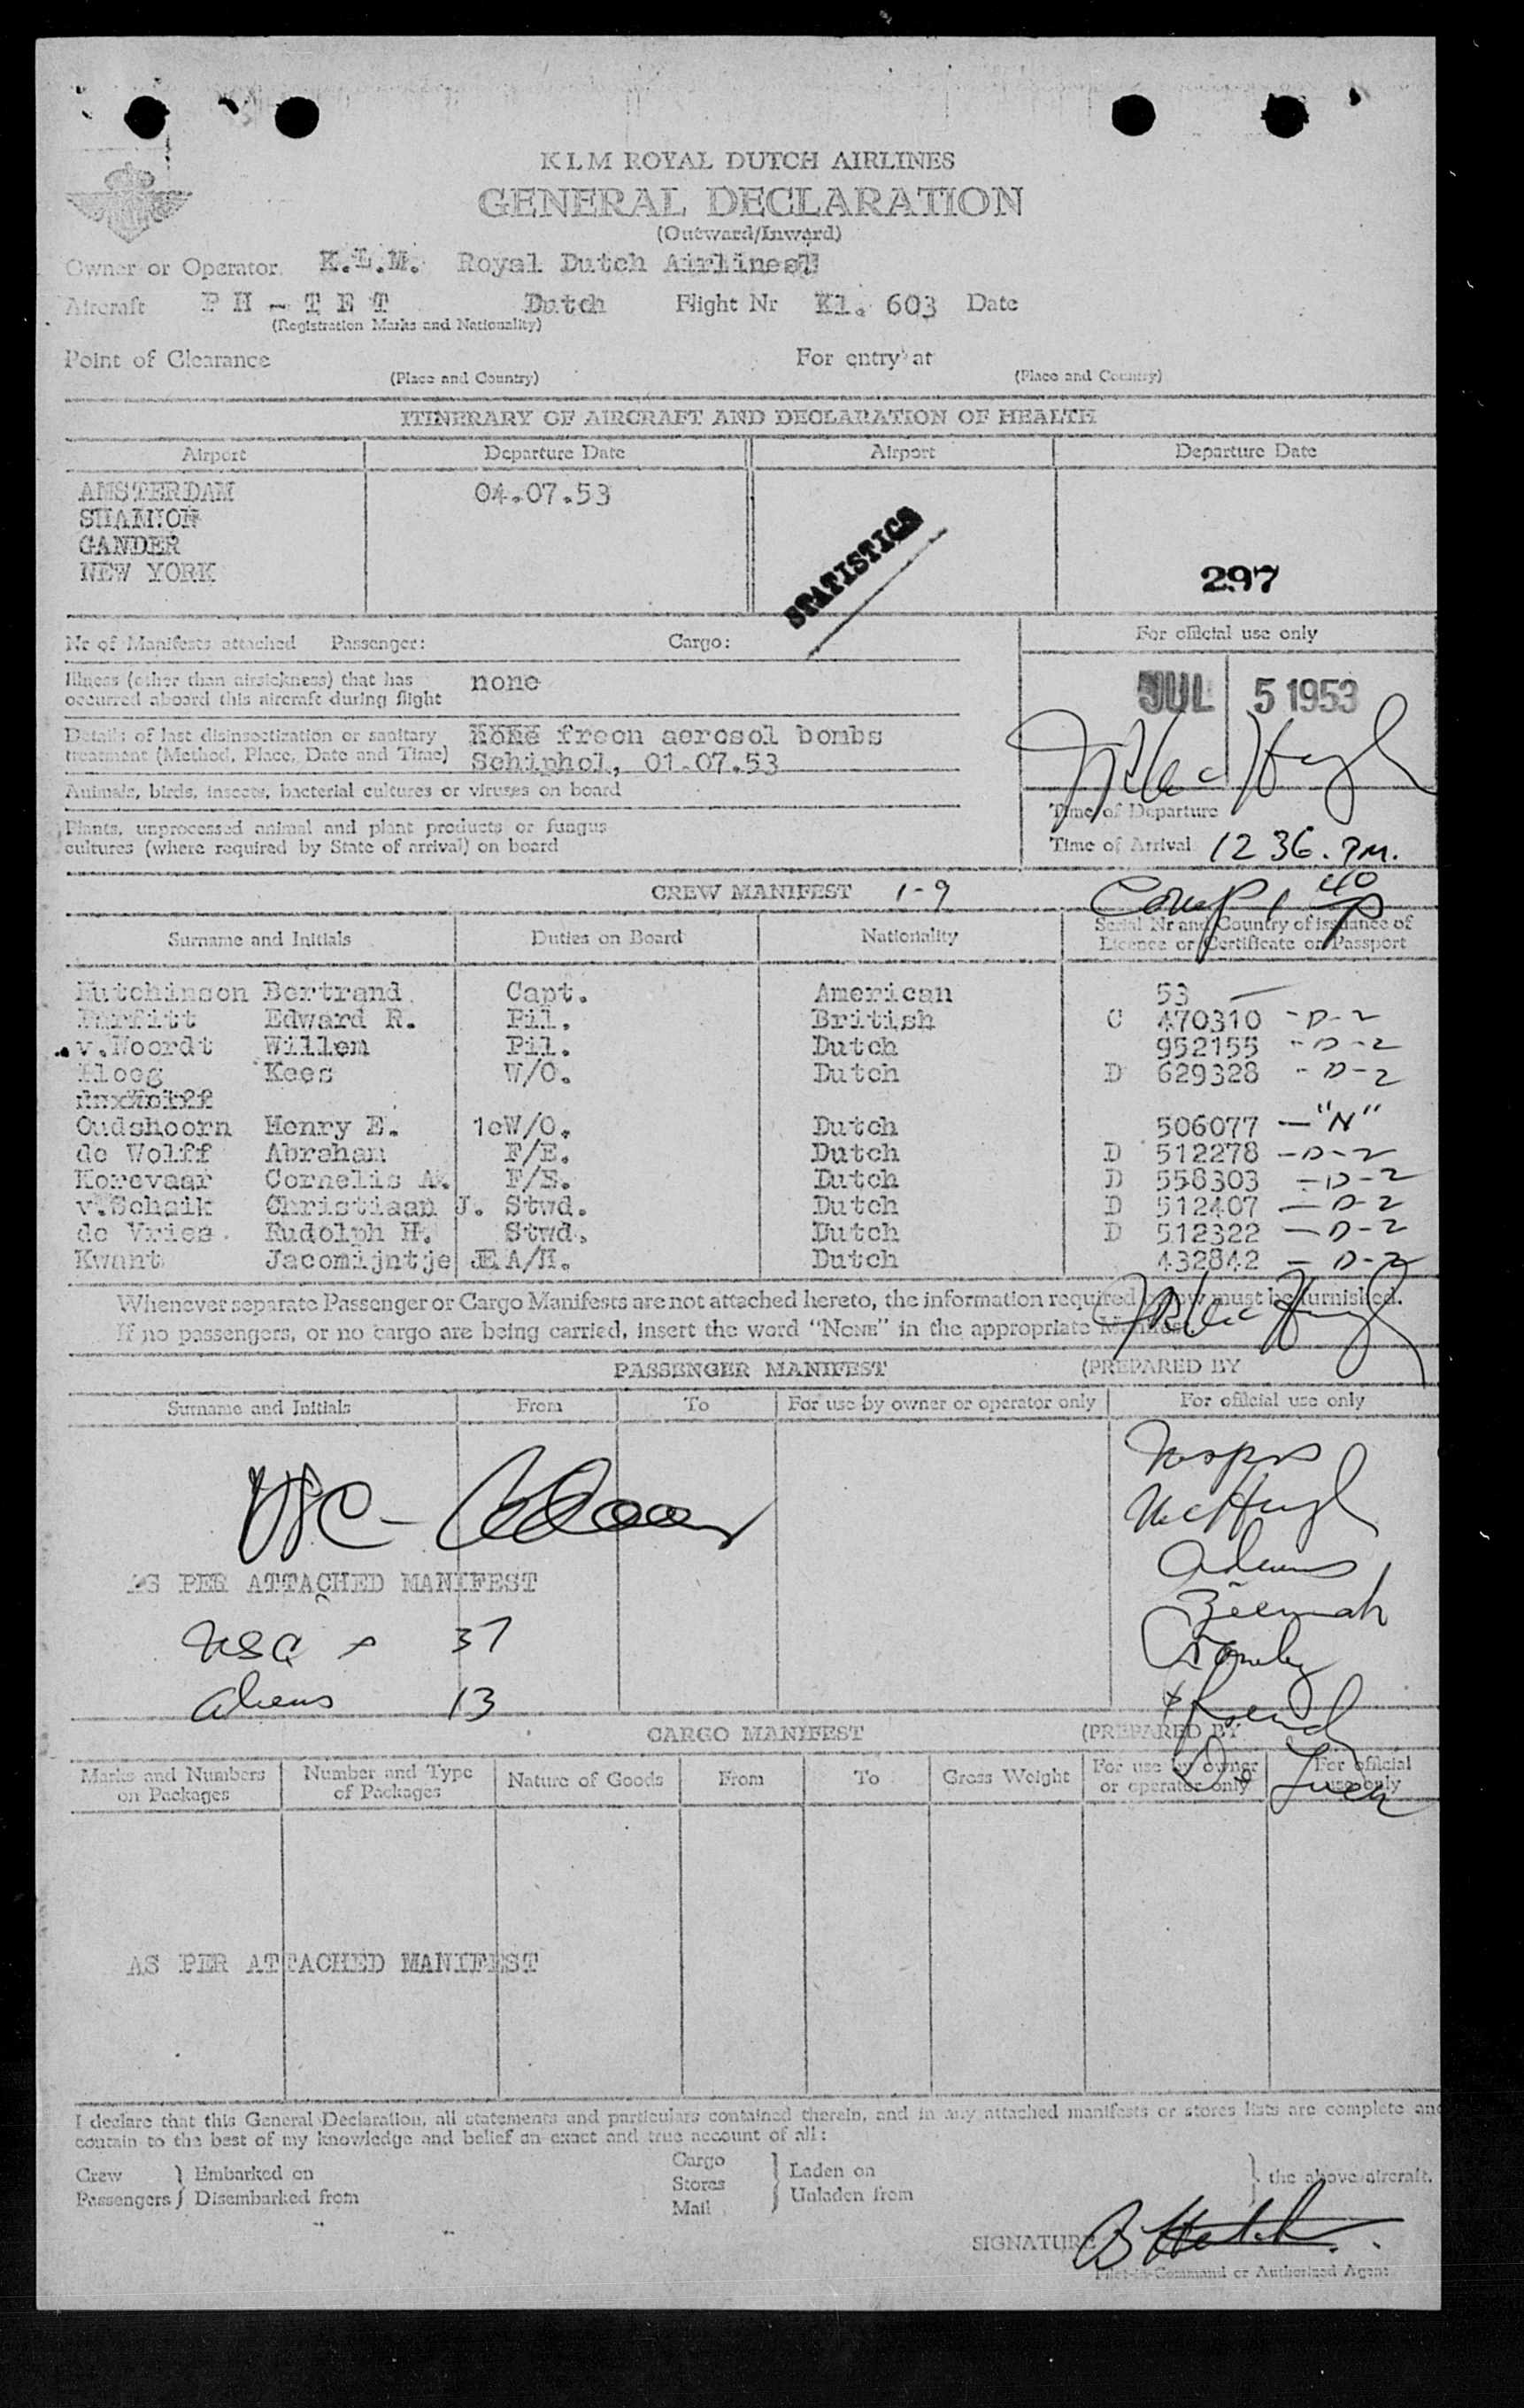 KLM ROYAL DUTCH AIRLINES
GENERAL DECLARATION
(Outward/Inward)
Owner or Operator K.L.M. Royal Dutch Airlines
Aircraft PH - TET Dutch Flight Nr Kl. 603 Date
(Registration Marks and Nationality)
Point of Clearance For entry at
(Place and Country) (Place and Country)
ITINERARY OF AIRCRAFT AND DECLARATION OF HEALTH
Airport Departure Date Airport Departure Date
AMSTERDAM 04.07.53
SHANNON
GANDER
NEW YORK
STATISTICS
297
Nr of Manifests attached Passenger: Cargo:
For official use only
Illness (other than airsickness) that has
occurred aboard this aircraft during flight none
JUL 5 1953
Details of last disinsectization or sanitary
treatment (Method, Place, Date and Time) freon aerosol bombs
Schiphol, 01.07.53
Animals, birds, insects, bacterial cultures or viruses on board
Plants, unprocessed animal and plant products or fungus
cultures (where required by State of arrival) on board
Time of Departure
Time of Arrival 12 36. PM.
CREW MANIFEST 1-9
Surname and Initials Duties on Board Nationality Serial Nr and Country of issuance of
Licence or Certificate or Passport
Hutchinson Bertrand Capt. American 53 —
Parfitt Edward R. Pil. British C 470310 -D-2
v.Noordt Willem Pil. Dutch 952155 -D-2
Ploeg Kees W/O. Dutch D 629328 -D-2
Oudshoorn Henry E. 1eW/O. Dutch 506077 —"N"
de Wolff Abraham F/E. Dutch D 512278 -D-2
Korevaar Cornelis A. F/E. Dutch D 558303 -D-2
v.Schaik Christiaan J. Stwd. Dutch D 512407 -D-2
de Vries Rudolph H. Stwd. Dutch D 512322 -D-2
Kwant Jacomijntje A/H. Dutch 432842 - D-2
Whenever separate Passenger or Cargo Manifests are not attached hereto, the information required below must be furnished.
If no passengers, or no cargo are being carried, insert the word "NONE" in the appropriate Manifest.
PASSENGER MANIFEST (PREPARED BY
Surname and Initials From To For use by owner or operator only For official use only
AS PER ATTACHED MANIFEST
McHugh
Adams
USC 37
Aliens 13
CARGO MANIFEST (PREPARED BY
Marks and Numbers on Packages Number and Type of Packages Nature of Goods From To Gross Weight For use by owner or operator only For official use only
AS PER ATTACHED MANIFEST
I declare that this General Declaration, all statements and particulars contained therein, and in any attached manifests or stores lists are complete and
contain to the best of my knowledge and belief an exact and true account of all:
Crew } Embarked on Cargo } Laden on } the above aircraft.
Passengers } Disembarked from Stores } Unladen from
Mail
SIGNATURE
Pilot-in-Command or Authorized Agent